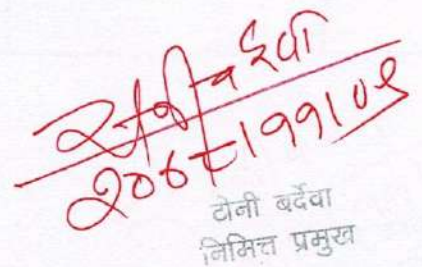 २०७८।११।०९
टोनी बर्देवा
निमित्त प्रमुख